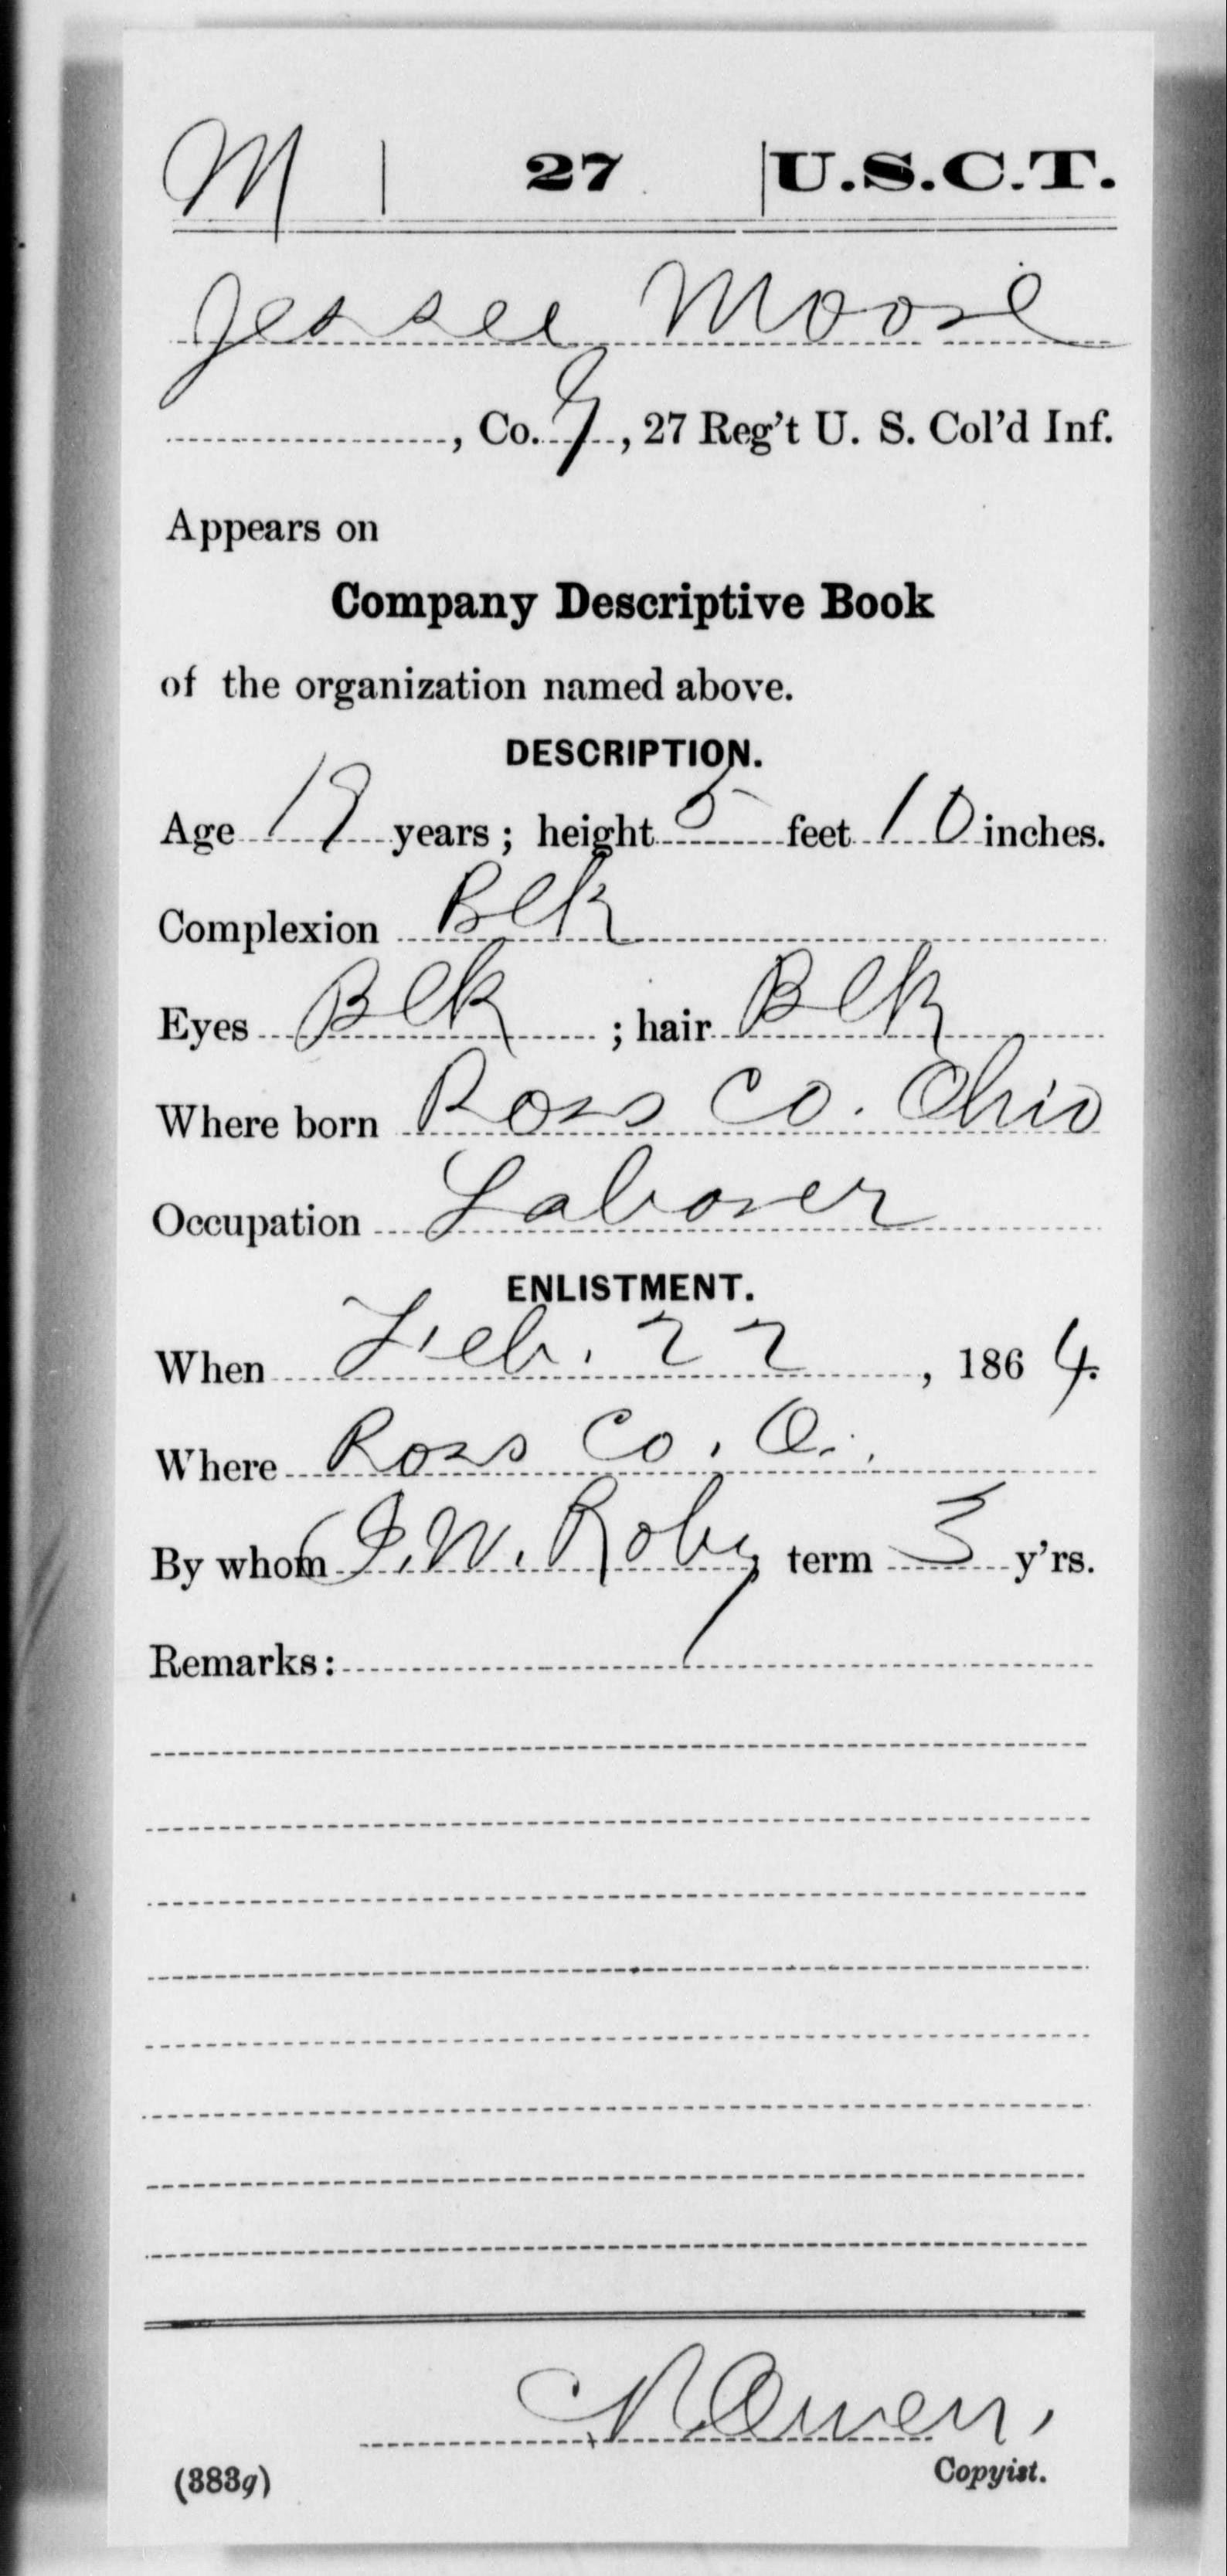 M | 27 | U.S.C.T.
Jessee Moore
, Co. G, 27 Reg't U. S. Col'd Inf.
Appears on
Company Descriptive Book
of the organization named above.
DESCRIPTION.
Age 19 years; height 5 feet 10 inches.
Complexion Blk
Eyes Blk ; hair Blk
Where born Ross Co. Ohio
Occupation Laborer
ENLISTMENT.
When Feb. 22, 1864.
Where Ross Co. O.
By whom W. Roby term 3 y'rs.
Remarks:
Owen,
(383g) Copyist.